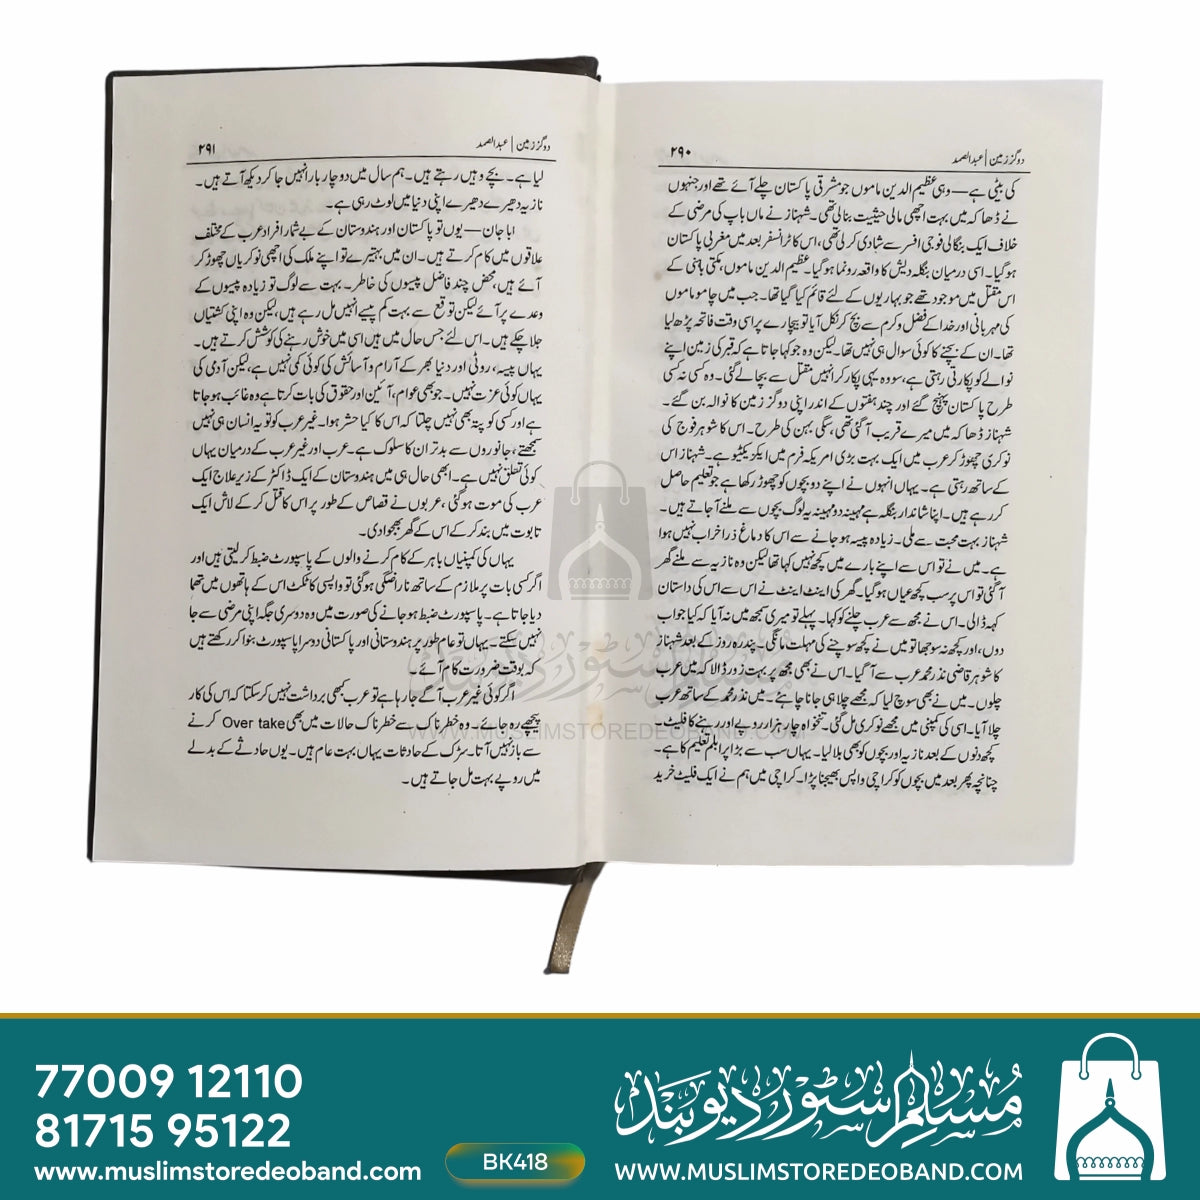 دو گز زمین | عبدالصمد ۲۹۰
کی بیٹی ہے — وہی عظیم الدین ماموں جو مشرقی پاکستان چلے آئے تھے اور جنہوں
نے ڈھاکہ میں بہت اچھی مالی حیثیت بنالی تھی۔ شہناز نے ماں باپ کی مرضی کے
خلاف ایک بنگالی فوجی افسر سے شادی کرلی تھی، اس کا ٹرانسفر بعد میں مغربی پاکستان
ہوگیا۔ اسی درمیان بنگلہ دیش کا واقعہ رونما ہوگیا۔ عظیم الدین ماموں، مکتی باہنی کے
اس مقتل میں موجود تھے جو بہاریوں کے لئے قائم کیا گیا تھا۔ جب میں چامو ماموں
کی مہربانی اور خدا کے فضل و کرم سے بچ کر نکل آیا تو بیچارے پر اسی وقت فاتحہ پڑھ لیا
تھا۔ ان کے بچنے کا کوئی سوال ہی نہیں تھا۔ لیکن وہ جو کہا جاتا ہے کہ قبر کی زمین اپنے
نوالے کو پکارتی رہتی ہے، سو وہ یہی پکار کر انہیں مقتل سے بچالے گئی۔ وہ کسی نہ کسی
طرح پاکستان پہنچ گئے اور چند ہفتوں کے اندر اپنی دو گز زمین کا نوالہ بن گئے۔
شہناز ڈھاکہ میں میرے قریب آگئی تھی، سگی بہن کی طرح۔ اس کا شوہر فوج کی
نوکری چھوڑ کر عرب میں ایک بہت بڑی امریکہ فرم میں ایکزیکٹیو ہے۔ شہناز اس
کے ساتھ رہتی ہے۔ یہاں انہوں نے اپنے دو بچوں کو چھوڑ رکھا ہے جو تعلیم حاصل
کر رہے ہیں۔ اپنا شاندار بنگلہ ہے مہینہ دو مہینہ پہ لوگ بچوں سے ملنے آجاتے ہیں۔
شہناز بہت محبت سے ملی۔ زیادہ پیسہ ہو جانے سے اس کا دماغ ذرا خراب نہیں ہوا
ہے۔ میں نے تو اس سے اپنے بارے میں کچھ نہیں کہا تھا لیکن وہ نازیہ سے ملنے گھر
آگئی تو اس پر سب کچھ عیاں ہو گیا۔ گھر کی اینٹ اینٹ نے اس سے اس کی داستان
کہہ ڈالی۔ اس نے مجھ سے عرب چلنے کو کہا۔ پہلے تو میری سمجھ میں نہ آیا کہ کیا جواب
دوں، اور کچھ نہ سوجھا تو میں نے کچھ سوچنے کی مہلت مانگی۔ پندرہ روز کے بعد شہناز
کا شوہر قاضی نذر محمد عرب سے آ گیا۔ اس نے بھی مجھ پر بہت زور ڈالا کہ میں عرب
چلوں۔ میں نے بھی سوچ لیا کہ مجھے چلا ہی جانا چاہئے۔ میں نذر محمد کے ساتھ عرب
چلا آیا۔ اسی کی کمپنی میں مجھے نوکری مل گئی۔ تنخواہ چار ہزار روپے اور رہنے کا فلیٹ۔
کچھ دنوں کے بعد نازیہ اور بچوں کو بھی بلالیا۔ یہاں سب سے بڑا پرابلم تعلیم کا ہے۔
چنانچہ پھر بعد میں بچوں کو کراچی واپس بھیجنا پڑا۔ کراچی میں ہم نے ایک فلیٹ خرید
دو گز زمین | عبدالصمد ۲۹۱
لیا ہے۔ بچے وہیں رہتے ہیں۔ ہم سال میں دو چار بار انہیں جا کر دیکھ آتے ہیں۔
نازیہ دھیرے دھیرے اپنی دنیا میں لوٹ رہی ہے۔
ابا جان — یوں تو پاکستان اور ہندوستان کے بے شمار افراد عرب کے مختلف
علاقوں میں کام کرتے ہیں۔ ان میں بہتیرے تو اپنے ملک کی اچھی نوکریاں چھوڑ کر
آئے ہیں، محض چند فاضل پیسوں کی خاطر۔ بہت سے لوگ تو زیادہ پیسوں کے
وعدے پر آئے لیکن توقع سے بہت کم پیسے انہیں مل رہے ہیں، لیکن وہ اپنی کشتیاں
جلا چکے ہیں۔ اس لئے جس حال میں ہیں اسی میں خوش رہنے کی کوشش کرتے ہیں۔
یہاں پیسہ، روٹی اور دنیا بھر کے آرام و آسائش کی کوئی کمی نہیں ہے، لیکن آدمی کی
یہاں کوئی عزت نہیں۔ جو بھی عوام، آئین اور حقوق کی بات کرتا ہے وہ غائب ہو جاتا
ہے اور کسی کو پتہ بھی نہیں چلتا کہ اس کا کیا حشر ہوا۔ غیر عرب کو تو یہ انسان ہی نہیں
سمجھتے، جانوروں سے بدتر ان کا سلوک ہے۔ عرب اور غیر عرب کے درمیان یہاں
کوئی تعلق نہیں ہے۔ ابھی حال ہی میں ہندوستان کے ایک ڈاکٹر کے زیر علاج ایک
عرب کی موت ہو گئی، عربوں نے قصاص کے طور پر اس کا قتل کر کے لاش ایک
تابوت میں بند کر کے اس کے گھر بھجوا دی۔
یہاں کی کمپنیاں باہر کے کام کرنے والوں کے پاسپورٹ ضبط کر لیتی ہیں اور
اگر کسی بات پر ملازم کے ساتھ ناراضگی ہوگئی تو واپسی کا ٹکٹ اس کے ہاتھوں میں تھما
دیا جاتا ہے۔ پاسپورٹ ضبط ہو جانے کی صورت میں وہ دوسری جگہ اپنی مرضی سے جا
نہیں سکتے۔ یہاں تو عام طور پر ہندوستانی اور پاکستانی دوسرا پاسپورٹ بنوا کر رکھتے ہیں
کہ بوقت ضرورت کام آئے۔
اگر کوئی غیر عرب آگے جا رہا ہے تو عرب کبھی برداشت نہیں کر سکتا کہ اس کی کار
پیچھے رہ جائے۔ وہ خطرناک سے خطرناک حالات میں بھی Over take کرنے
سے باز نہیں آتا۔ سڑک کے حادثات یہاں بہت عام ہیں۔ یوں حادثے کے بدلے
میں روپے بہت مل جاتے ہیں۔
مسلم سٹور دیوبند
WWW.MUSLIMSTOREDEOBAND.COM
77009 12110
81715 95122
www.muslimstoredeoband.com
BK418
مسلم سٹور دیوبند
WWW.MUSLIMSTOREDEOBAND.COM